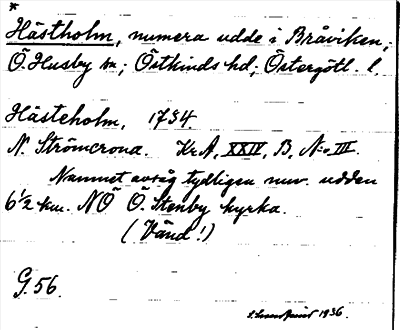 *
Hästholm, numera udde i Bråviken;
Ö. Husby sn; Östkinds hd; Östergötl. l.
Hästeholm, 1734.
N. Strömcrona. KrA, XXIV, B, No III.
Namnet avsåg tydligen nuv. udden
6 1/2 km. NÖ Ö. Stenby kyrka.
(Vänd!)
G. 56.
1936.